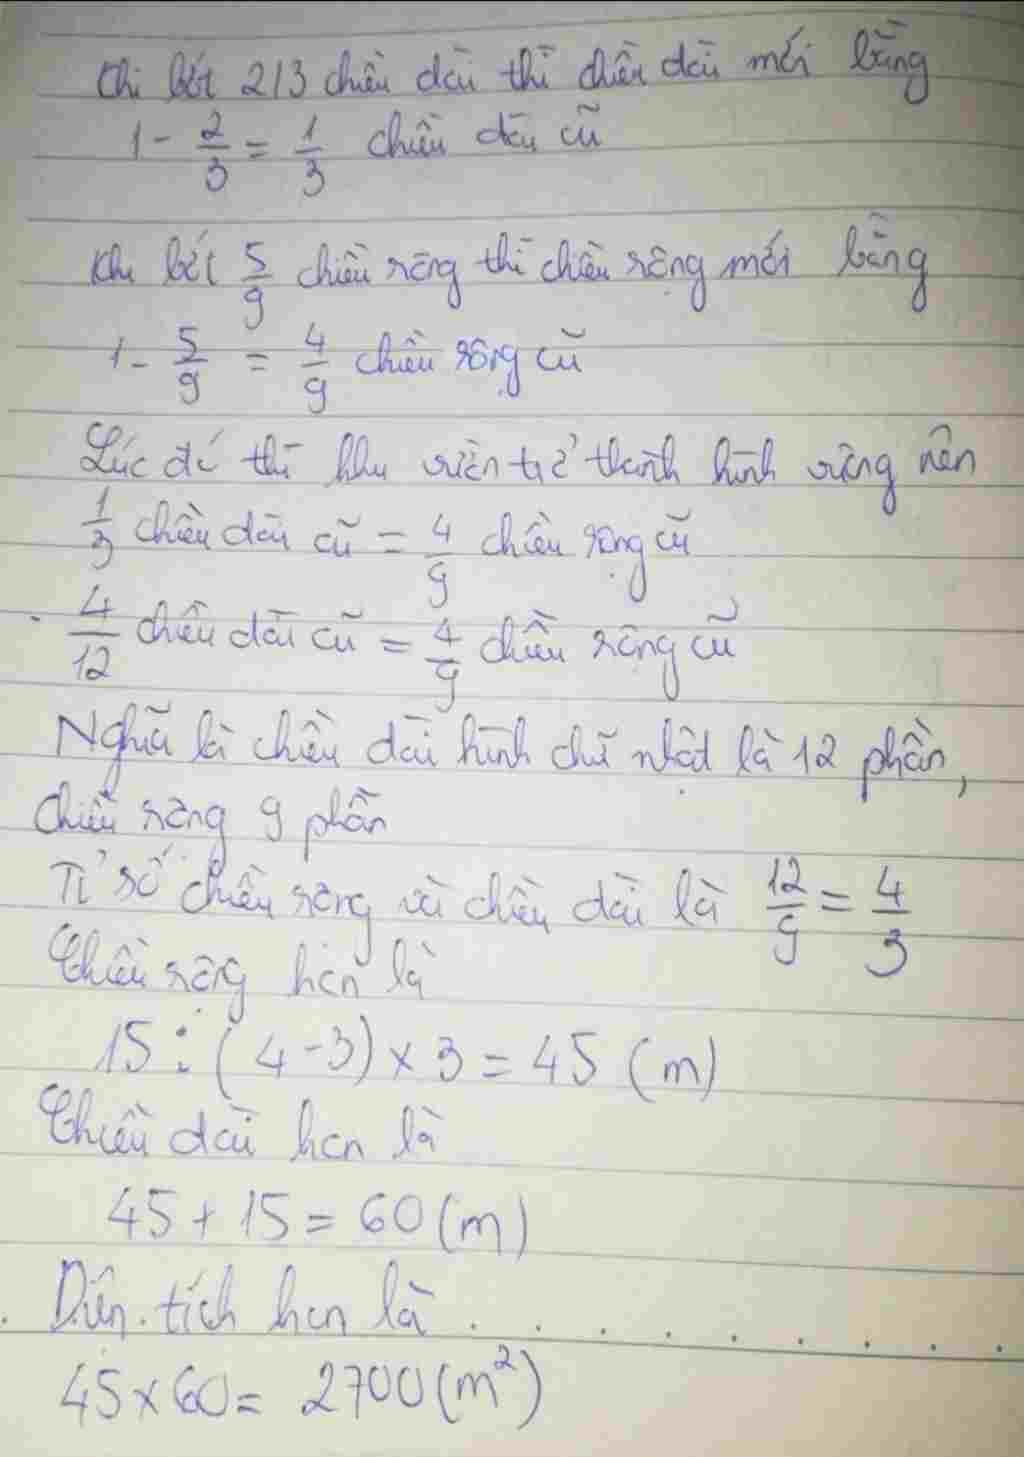 Khi bớt 2/3 chiều dài thì chiều dài mới bằng
1 - 2/3 = 1/3 chiều dài cũ
Khi bớt 5/9 chiều rộng thì chiều rộng mới bằng
1 - 5/9 = 4/9 chiều rộng cũ
Lúc đó thì khu vườn trở thành hình vuông nên
1/3 chiều dài cũ = 4/9 chiều rộng cũ
4/12 chiều dài cũ = 4/9 chiều rộng cũ
Nghĩa là chiều dài hình chữ nhật là 12 phần,
chiều rộng 9 phần
Tỉ số chiều rộng và chiều dài là 12/9 = 4/3
Chiều rộng hcn là
15 : (4 - 3) x 3 = 45 (m)
Chiều dài hcn là
45 + 15 = 60 (m)
Diện tích hcn là
45 x 60 = 2700 (m²)